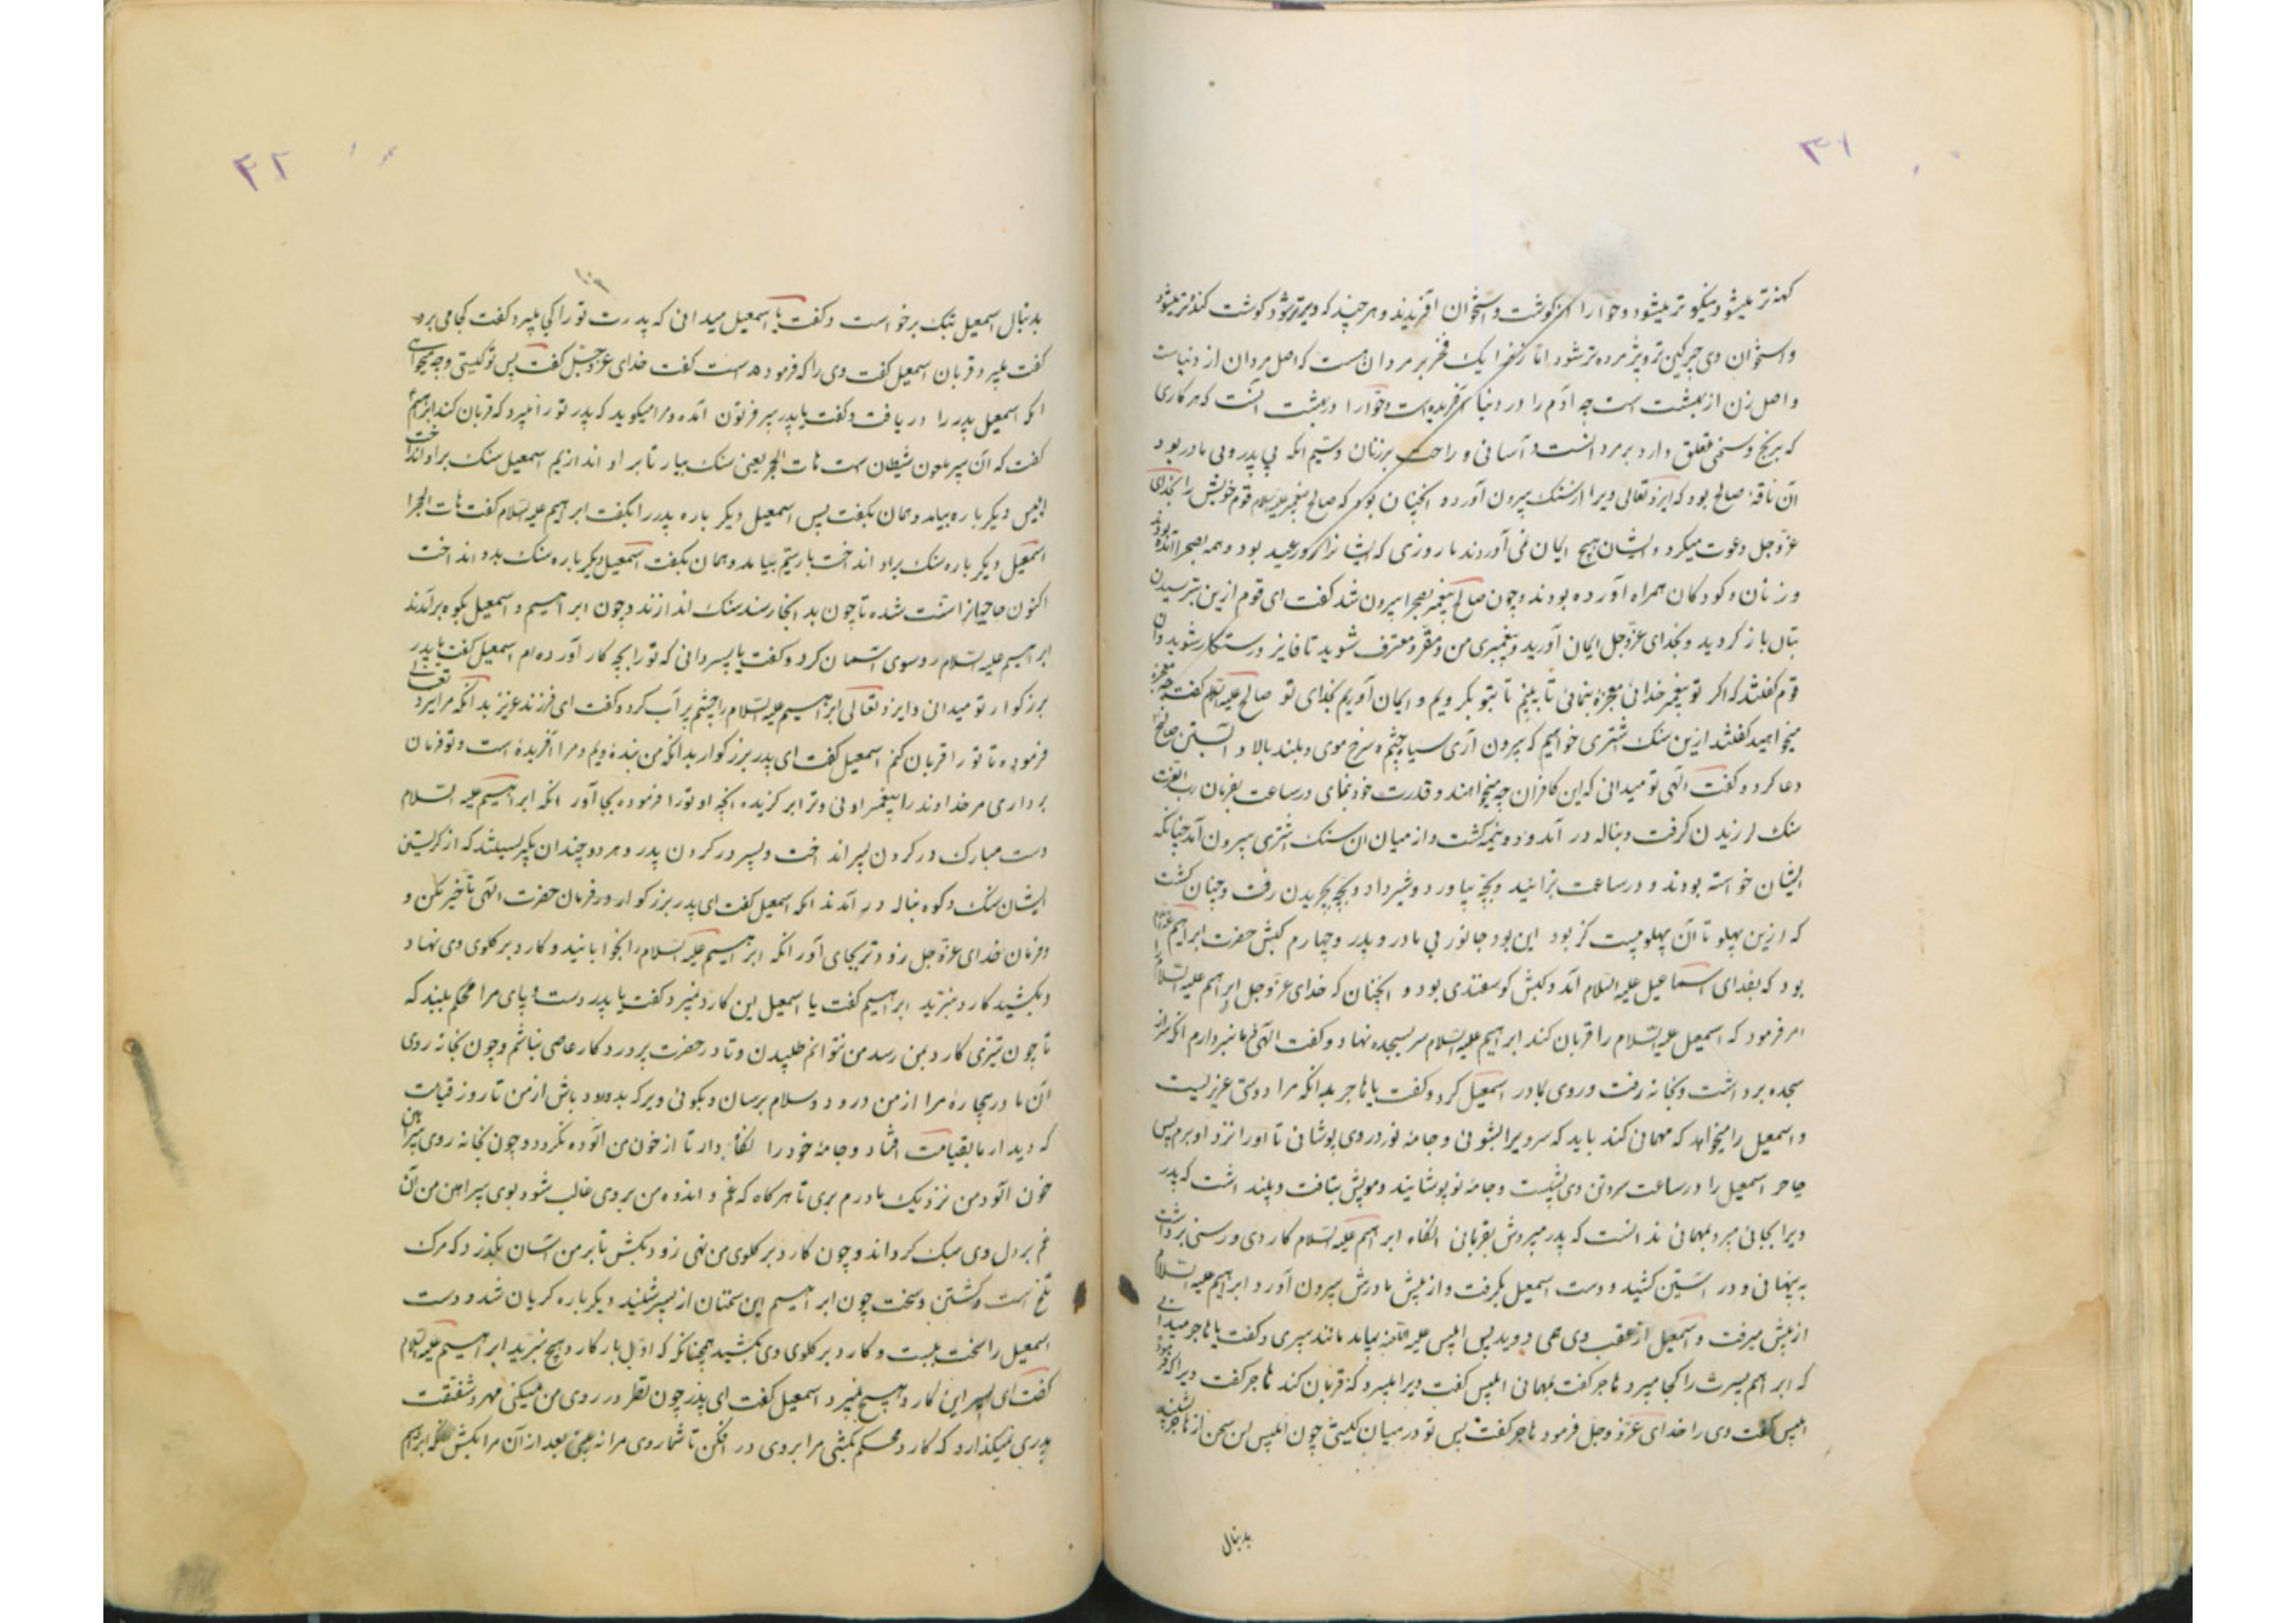 ۳۱
کهنه‌تر میشود نیکوتر میشود و حوا را از گوشت و استخوان آفریدند و هرچند که دیرتر شود گوشت گنده‌تر میشود
و استخوان وی چرکین‌تر و پژمرده‌تر شود اما زنانرا یک فخر بر مردان هست که اصل مردان از دنیاست
و اصل زن از بهشت است چه آدم را در دنیا آفریده است و حوّا را در بهشت آنست که هر کاری
که برنج و سختی تعلق دارد بر مرد است و آسانی و راحت بر زنان و سیّم آنکه بی پدر و بی مادر بود
آن ناقهٔ صالح بود که ایزد تعالی ویرا از سنک بیرون آورد و آنچنان بود که صالح پیغمبر علیه السلام قوم خویش را بخدای
عزّ و جل دعوت میکرد و ایشان هیچ ایمان نمی آوردند تا روزی که ایشانرا روز عید بود و همه بصحرا آمده بودند
و زنان و کودکان همراه آورده بودند و چون صالح پیغمبر بصحرا بیرون شد گفت ای قوم ازین پرستیدن
بتان باز گردید و بخدای عزّ و جل ایمان آورید و به پیغمبری من مقرّ و معترف شوید تا فایز و رستگار شوید و آن
قوم گفتند که اگر تو پیغمبر خدائی معجزهٔ بنمائی تا ببینیم تا بتو بگرویم و ایمان آوریم بخدای تو صالح علیه السلام گفت چه معجزه
میخواهید گفتند ازین سنک شتری خواهیم که بیرون آری سیاه چشم و سرخ موی و بلند بالا و آبستن صالح
دعا کرد و گفت الهی تو میدانی که این کافران چه میخواهند و قدرت خود بنمای در ساعت بفرمان رب العزت
سنک لرزیدن گرفت و بناله در آمد و دو نیمه گشت و از میان آن سنک شتری بیرون آمد چنانکه
ایشان خواسته بودند و در ساعت بزائید و بچّه بیاورد و شیر داد و بچّه بچریدن رفت و چنان گشت
که ازین پهلو تا آن پهلو بیست گز بود این بود جانور بی مادر و پدر و چهارم کبش حضرت ابراهیم علیه السلام
بود که بفدای اسماعیل علیه السلام آمد و کبش گوسفندی بود و آنچنان که خدای عزّ و جل ابراهیم علیه السلام را
امر فرمود که اسمعیل علیه السلام را قربان کند ابراهیم علیه السلام سر بسجده نهاد و گفت الهی فرمانبردارم آنکه سر از
سجده برداشت و بخانه رفت و روی بمادر اسمعیل کرد و گفت یا هاجر بدانکه مرا دوستی عزیز است
و اسمعیل را میخواهد که مهمانی کند باید که سر ویرا بشوئی و جامهٔ نو در وی پوشانی تا او را نزد او برم پس
هاجر اسمعیل را در ساعت سر و تن وی بشست و جامهٔ نو پوشانید و مویش ببافت و پنداشت که پدر
ویرا بجائی میبرد بمهمانی ندانست که پدر میبردش بقربانی آنگاه ابراهیم علیه السلام کاردی و رسنی برداشت
به پنهانی و در آستین کشید و دست اسمعیل بگرفت و از پیش مادرش بیرون آورد ابراهیم علیه السلام
از پیش میرفت و اسمعیل از عقب وی همی دوید پس ابلیس علیه اللعنه بیامد مانند پیری و گفت یا هاجر میدانی
که ابراهیم پسرت را کجا میبرد هاجر گفت بمهمانی ابلیس گفت ویرا میبرد که قربان کند هاجر گفت ویرا که فرمود
ابلیس گفت وی را خدای عزّ و جل فرمود هاجر گفت پس تو در میان کیستی چون ابلیس این سخن از هاجر بشنید
بدنبال
۴۲
بدنبال اسمعیل بتک برخواست و گفت یا اسمعیل میدانی که پدرت تو را کجا میبرد گفت کجا می برد
گفت میبرد قربان اسمعیل گفت وی را که فرموده است گفت خدای عزّ و جلّ گفت پس تو کیستی و چه میخواهی
آنکه اسمعیل پدر را دریافت و گفت یا پدر پیر فرتوت آمده و مرا میگوید که پدر تو را میبرد که قربان کند ابراهیم
گفت که آن پیر ملعون شیطان است هات الحجر یعنی سنک بیار تا بر او اندازیم اسمعیل سنک بر او انداخت
ابلیس دیگر باره بیامد و همان بگفت پس اسمعیل دیگر باره پدر را بگفت ابراهیم علیه السلام گفت هات الحجر
اسمعیل دیگر باره سنک بر او انداخت بار سیّم بیامد و همان بگفت اسمعیل دیگر باره سنک بدو انداخت
اکنون حاجیانرا سنّت شده تا چون بدانجا رسند سنک اندازند و چون ابراهیم و اسمعیل بکوه برآمدند
ابراهیم علیه السلام رو سوی آسمان کرد و گفت یا پسر دانی که تو را بچه کار آورده‌ام اسمعیل گفت یا پدر
بزرگوار تو میدانی و ایزد تعالی ابراهیم علیه السلام را چشم پر آب کرد و گفت ای فرزند عزیز بدانکه مرا ایزد تعالی
فرموده تا تو را قربان کنم اسمعیل گفت ای پدر بزرگوار بدانکه من بندهٔ ویم و مرا آفریدهٔ است و تو فرمان
برداری مر خداوند را پیغمبر اوئی و ترا برگزیده آنچه او تو را فرموده بجا آور آنکه ابراهیم علیه السلام
دست مبارک در گردن پسر انداخت و پسر در گردن پدر و هر دو چندان بگریستند که از گریستن
ایشان سنک و کوه بناله در آمدند آنکه اسمعیل گفت ای پدر بزرگوار در فرمان حضرت الهی تأخیر مکن و
فرمان خدای عزّ و جل زودتر بجای آور آنکه ابراهیم علیه السلام را بخوابانید و کارد بر گلوی وی نهاد
و بکشید کارد نبرید ابراهیم گفت یا اسمعیل این کارد نمیبرد گفت یا پدر دست و پای مرا محکم ببند که
تا چون تیزی کارد بمن رسد من نتوانم طپیدن و تا در حضرت پروردگار عاصی نباشم و چون بخانه روی
آن مادر بیچارهٔ مرا از من درود و سلام برسان و بگوئی ویرا که بدرود باش از من تا روز قیامت
که دیدار ما بقیامت افتاد و جامهٔ خود را نگاه دار تا از خون من آلوده نگردد و چون بخانه روی پیراهن
خون آلود من نزدیک مادرم بری تا هر گاه که غم و اندوه من بر وی غالب شود بوی پیراهن من آن
غم بر دل وی سبک گرداند و چون کارد بر گلوی من نهی زود بکش تا بر من آسان بگذرد که مرک
تلخ است و کشتن و سخت چون ابراهیم این سخنان از پسر شنید دیگر باره گریان شد و دست
اسمعیل را سخت ببست و کارد بر گلوی وی بکشید همچنانکه که اوّل بار کارد هیچ نبرید ابراهیم علیه السلام
گفت ای پسر این کارد هیچ نمیبرد اسمعیل گفت ای پدر چون نظر در روی من میکنی مهر و شفقت
پدری نمیگذارد که کارد محکم بکشی مرا بروی در افکن تا شما روی مرا نه بینی بعد از آن مرا بکش آنکه ابراهیم